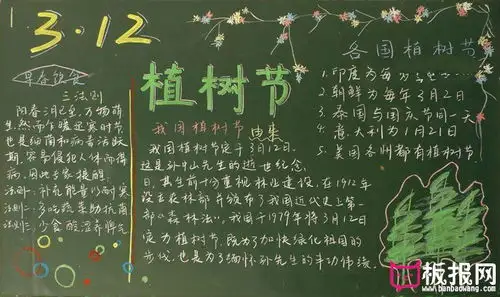 3·12
早春饮食
三法则
阳春三月已至,万物萌
生,然而乍暖还寒时节
也是细菌和病毒活跃
期,容易侵犯人体而得
病,因此专家提醒:
法则一:补充能量以耐寒
法则二:多吃蔬菜助抗菌
法则三:少食酸滋养脾元
植树节
我国植树节 由来
我国植树节定于3月12日,
这是孙中山先生的逝世纪念
日,其生前十分重视林业建设,在1912年
设立农林部并颁布了我国近代史上第一
部《森林法》,我国于1979年将3月12日
定为植树节,既为了加快绿化祖国的
步伐,也是为了缅怀孙先生的丰功伟绩。
各国植树节
1.印度为每
2.朝鲜为每年3月2日
3.泰国与国庆节同一天
4.意大利为11月21日
5.美国各州都有植树节
板报网
www.banbaowang.com